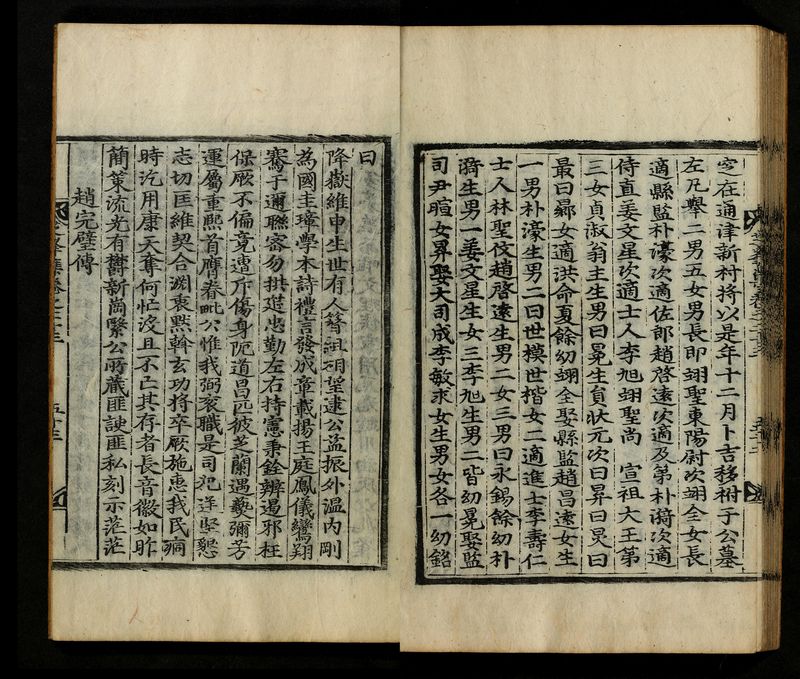 窆在通津新村將以是年十二月卜吉移祔于公墓
左凡擧二男五女男長即翊聖東陽尉次翊全女長
適縣監朴濠次適佐郎趙啓遠次適及第朴漪次適
侍直姜文星次適士人李旭翊聖尚 宣祖大王第
三女貞淑翁主生男曰冕生員狀元次曰昇曰炅曰
最曰鼏女適洪命夏餘幼翊全娶縣監趙昌遠女生
一男朴濠生男二曰世模世楷女二適進士李壽仁
士人林聖伋趙啓遠生男二女三男曰永錫餘幼朴
漪生男一姜文星生女三李旭生男二皆幼冕娶監
司尹暄女昇娶大司成李敏求女生男女各一幼銘
曰
降嶽維申生世有人簪組碩望逮公益振外溫內剛
為國圭璋學本詩禮言發成章載揚王庭鳳儀鸞翔
騫于邇聯密勿拱莚忠勤左右持憲秉銓辨遏邪枉
保厥不偏竟遭斥傷身阨道昌匹彼荃蘭遇爇彌芳
運屬重熙首膺眷毗公惟我弼袞職是司堅懇
志切匡維契合淵衷默斡玄功將卒厥施惠我民痌
時汔用康天奪何忙沒且不亡其存者長音徽如昨
簡策流光有欝新崗繄公所藏匪諛匪私刻示茫茫
趙完璧傳
五十三